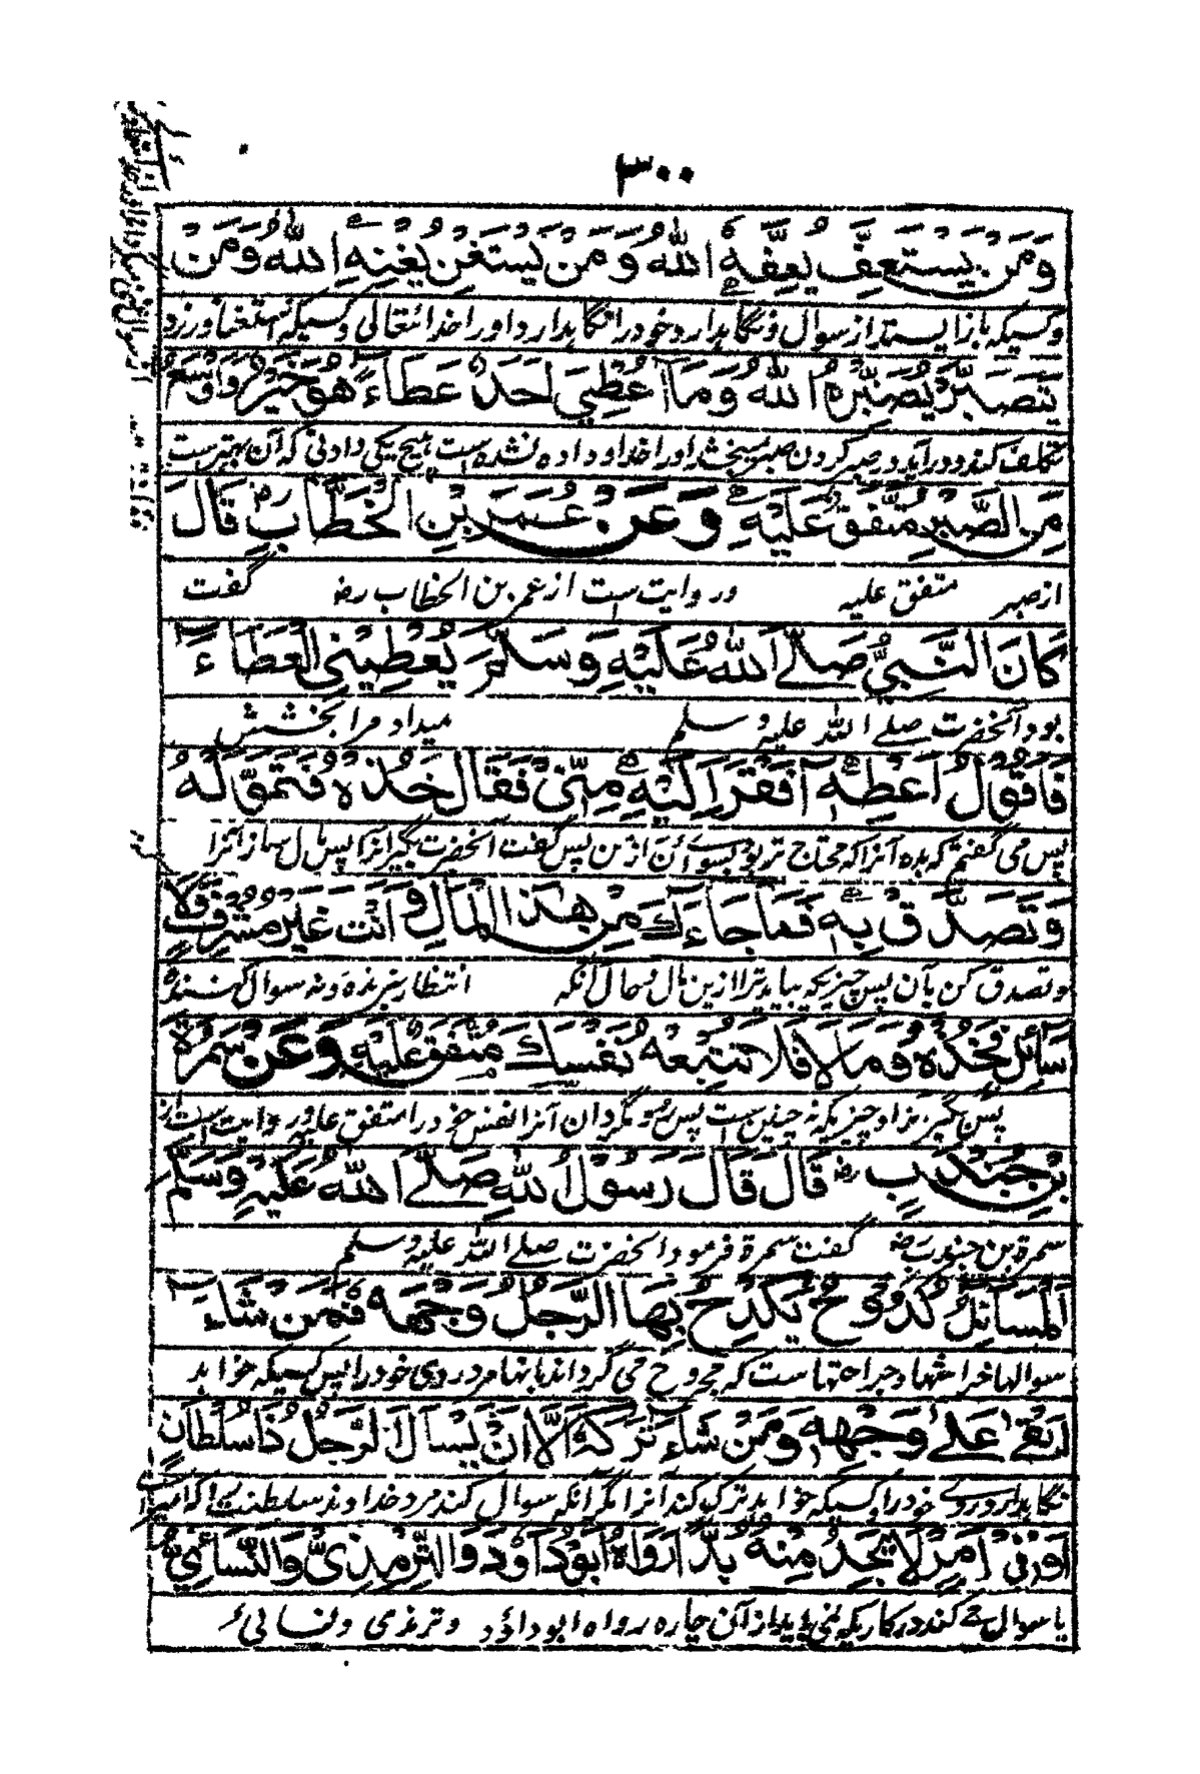 ٣٠٠
وَمَنْ يَسْتَعِفَّ يُعِفَّهُ اللهُ وَمَنْ يَسْتَغْنِ يُغْنِهِ اللهُ وَمَنْ
وكسيكه باز ايستد از سوال ونگاهدارد خود را نگاهدارد او را خدا ئتعالى وكسيكه استغنا ورزد
يَتَصَبَّرْ يُصَبِّرْهُ اللهُ وَمَا أُعْطِيَ أَحَدٌ عَطَاءً هُوَ خَيْرٌ وَاَوْسَعُ
تكلف كند ودر آيد در صبر كردن صبر ميبخشد او را خدا وداده نشده است هيچ يكى دادنى كه آن بهترست
مِنَ الصَّبْرِ مُتَّفَقٌ عَلَيْهِ وَعَنْ عُمَرَ بْنِ الْخَطَّابِ رض قَالَ
از صبر متفق عليه وروايت ست از عمر بن الخطاب رض گفت
كَانَ النَّبِيُّ صَلَّے اللهُ عَلَيْهِ وَسَلَّمَ يُعْطِيْنِي الْعَطَاءَ
بود آنحضرت صلے الله عليه وسلم ميداد مرا بخشش
فَاَقُوْلُ اَعْطِهٖ اَفْقَرَ اِلَيْهِ مِنِّيْ فَقَالَ خُذْهُ فَتَمَوَّلْهُ
پس مى گفتم كه بده آنرا كه محتاج تر بود بسوے آن از من پس گفت آنحضرت بگير آنرا پس مال ساز آنرا
وَتَصَدَّقْ بِهٖ فَمَا جَاءَكَ مِنْ هٰذَا الْمَالِ وَاَنْتَ غَيْرُ مُشْرِفٍ وَّلَا
وتصدق كن بآن پس چيزيكه بيايد ترا ازين مال وحال آنكه انتظار نبرنده ونه سوال كننده
سَائِلٍ فَخُذْهُ وَمَا لَا فَلَا تُتْبِعْهُ نَفْسَكَ مُتَّفَقٌ عَلَيْهِ وَعَنْ سَمُرَةَ
پس بگير آنرا وچيزيكه نه چنين ست پس مگردان آنرا نفس خود را متفق عليه وروايت ست از
بْنِ جُنْدُبٍ رض قَالَ قَالَ رَسُوْلُ اللهِ صَلَّے اللهُ عَلَيْهِ وَسَلَّمَ
سمرة بن جندب رض گفت سمرة فرمود آنحضرت صلے الله عليه وسلم
اَلْمَسَائِلُ كُدُوْحٌ يَكْدَحُ بِهَا الرَّجُلُ وَجْهَهٗ فَمَنْ شَاءَ
سوالها خراشها وجراحتهاست كه مجروح مى گرداند بآنها مرد روى خود را پس كسيكه خواهد
اَبْقٰى عَلٰے وَجْهِهٖ وَمَنْ شَاءَ تَرَكَهٗ اِلَّا اَنْ يَسْاَلَ الرَّجُلُ ذَا سُلْطَانٍ
نگاهدارد روے خود را وكسيكه خواهد ترك كند آنرا مگر آنكه سوال كند مرد خداوند سلطنت را كه امير
اَوْ فِيْ اَمْرٍ لَا يَجِدُ مِنْهُ بُدًّا رَوَاهُ اَبُوْ دَاوٗدَ وَالتِّرْمِذِيُّ وَالنَّسَائِيُّ
يا سوال مے كند در كاريكه نمى يابد از آن چاره رواه ابو داؤد وترمذى ونسائى